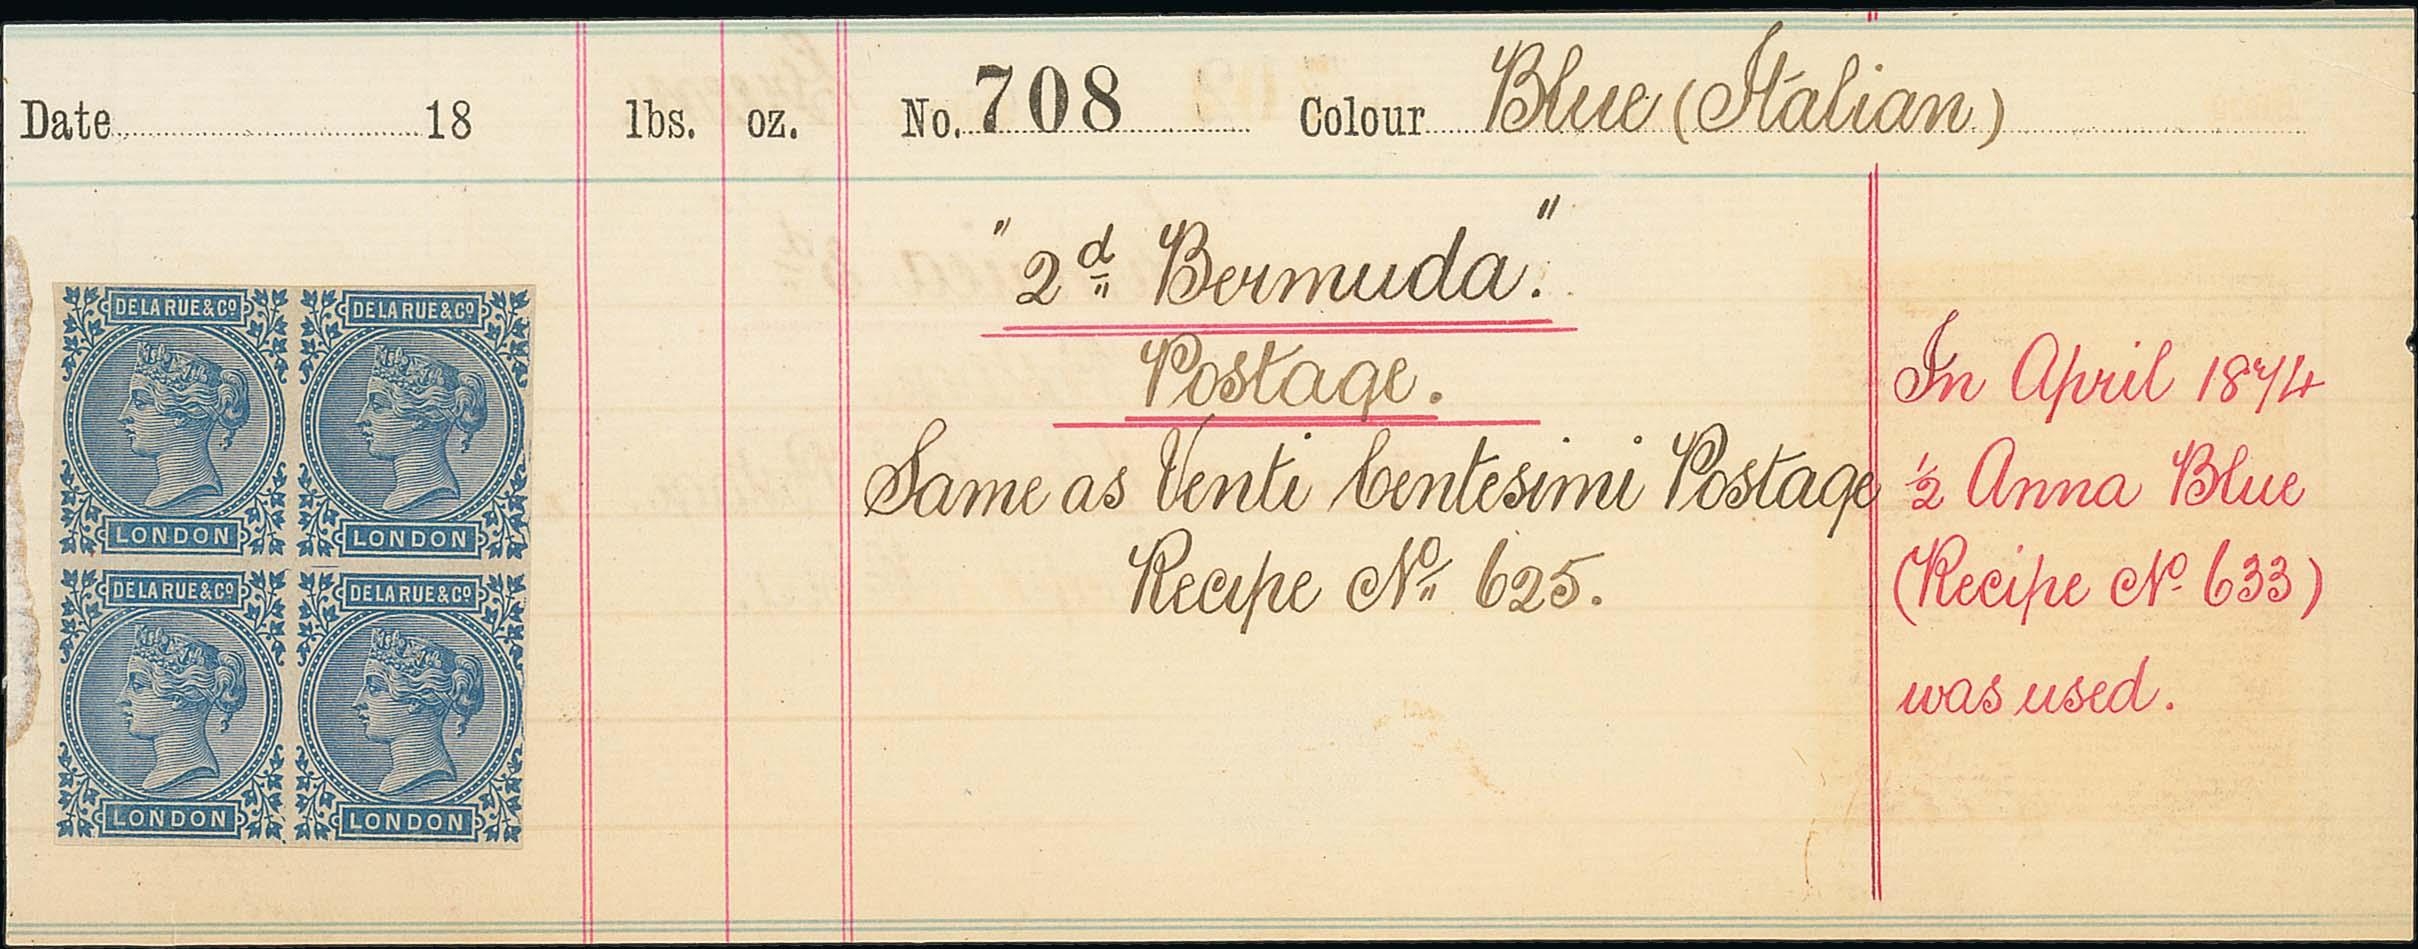 Date 18 lbs. oz. No. 708 Colour Blue (Italian)
"2d Bermuda."
Postage.
Same as Venti Centesimi Postage
Recipe No. 625.
In April 1874
½ Anna Blue
(Recipe No. 633)
was used.
DE LA RUE & Co DE LA RUE & Co
LONDON LONDON
DE LA RUE & Co DE LA RUE & Co
LONDON LONDON